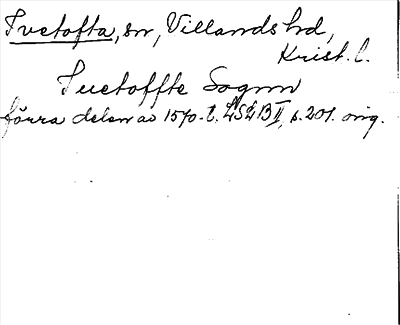 Ivetofta, sn, Villands hd,
Krist. l.
Iuetoffte Sognn
förra delen av 1570-t. LSLB II, s. 201. orig.